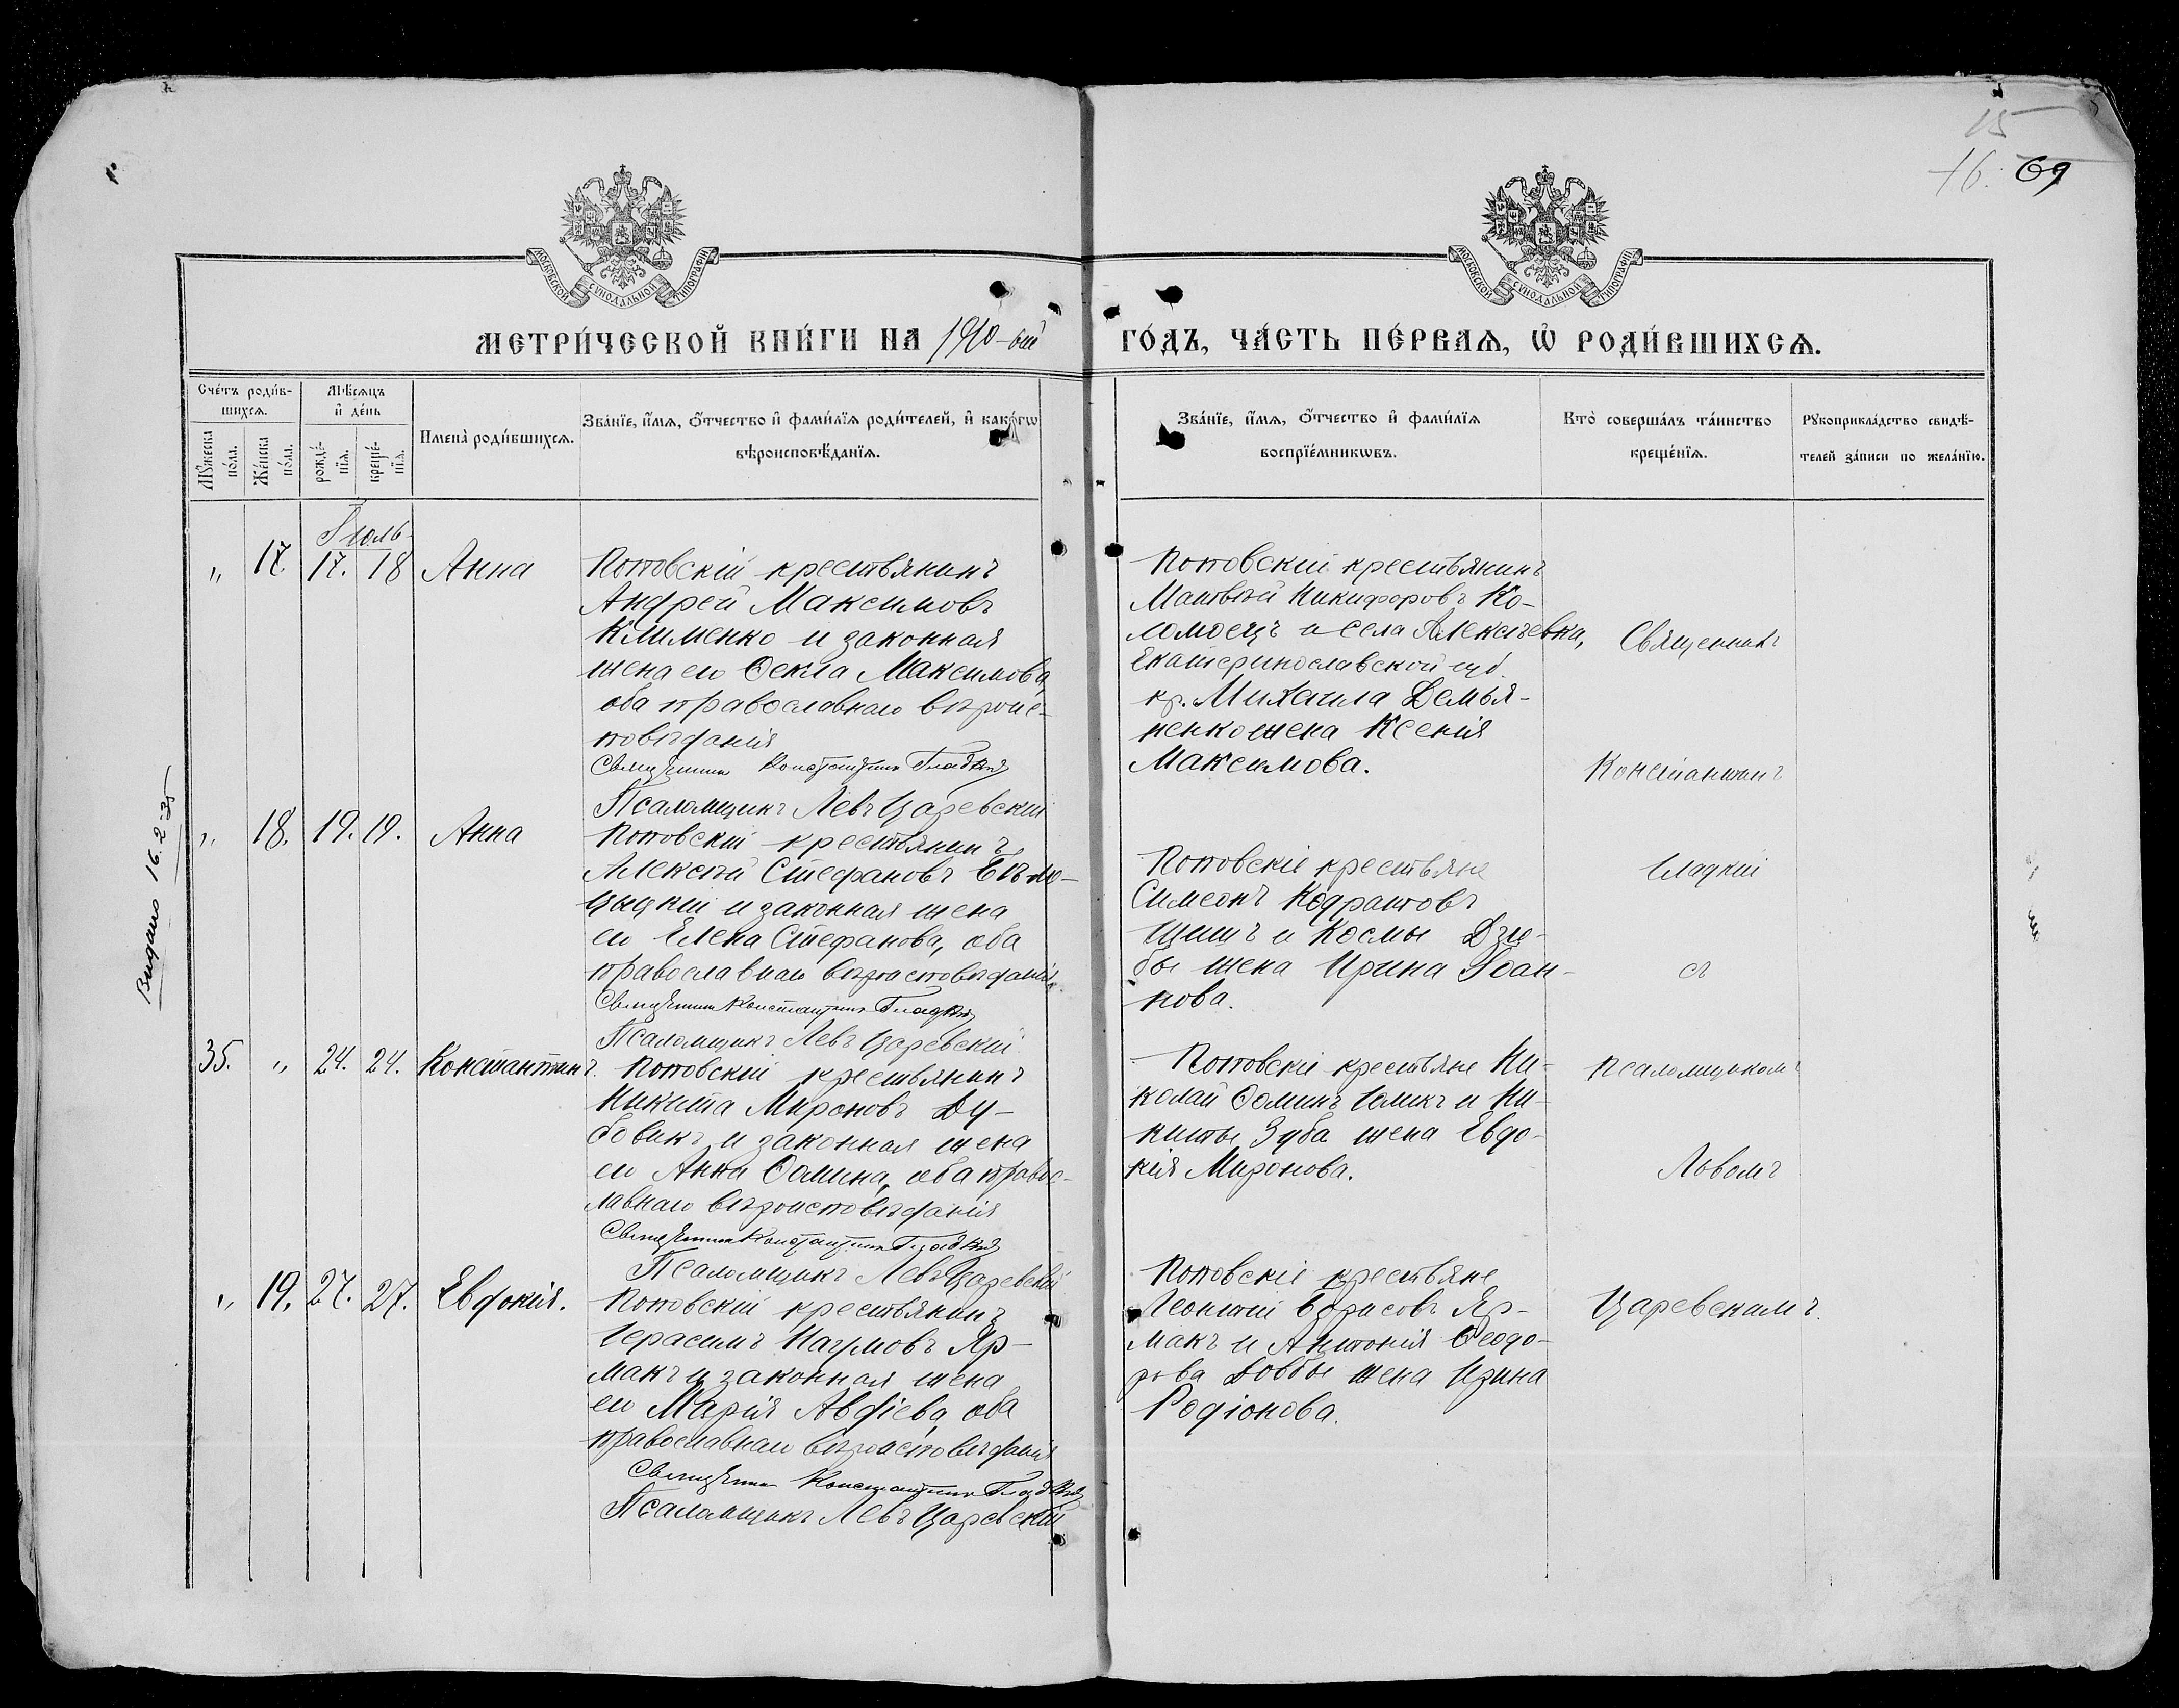 15
16. 69
МОСКОВСКОЙ СѴНОДАЛЬНОЙ ТИПОГРАФІИ
МОСКОВСКОЙ СѴНОДАЛЬНОЙ ТИПОГРАФІИ
МЕТРИ́ЧЕСКОЙ КНИ́ГИ НА 1910-ый ГО́ДЪ, ЧА́СТЬ ПЕ́РВАѦ, Ѡ҆ РОДИ́ВШИХСѦ.
Сче́тъ роди́в-
шихсѧ.
Мꙋжеска по́ла.
Же́нска по́ла.
Мѣ́сѧцъ
и҆ де́нь
рожде́-
нїѧ.
креще́-
нїѧ.
Имена̀ роди́вшихсѧ.
Зва́нїе, и҆́мѧ, ѻ҆́тчество и҆ фами́лїѧ роди́телей, и҆ како́гѡ
вѣроисповѣ́данїѧ.
Зва́нїе, и҆́мѧ, ѻ҆́тчество и҆ фами́лїѧ
воспрїе́мникѡвъ.
Кто̀ соверша́лъ та́инство
креще́нїѧ.
Рꙋкоприкла́дство свидѣ́-
телей за́писи по жела́нїю.
Іюль
„ 17. 17. 18 Анна
Поповскій крестьянинъ
Андрей Максимовъ
Клименко и законная
жена его Ѳекла Максимова,
оба православнаго вѣроис-
повѣданія
Священникъ Константинъ Гладкій
Псаломщикъ Левъ Царевскій
Поповскій крестьянинъ
Матвѣй Никифоровъ Ко-
ломоецъ и села Алексѣевка,
Екатеринославской губ.
кр. Михаила Демья-
ненко жена Ксенія
Максимова.
Священникъ
Константинъ
„ 18. 19. 19. Анна
Поповскій крестьянинъ
Алексѣй Стефановъ
и законная жена
его Елена Стефанова, оба
православнаго вѣроисповѣданія.
Священникъ Константинъ Гладкій
Псаломщикъ Левъ Царевскій
Поповскіе крестьяне
Симеонъ Кодратовъ
и Космы Дзю-
бы жена Ирина Іоан-
нова.
Гладкій
съ
35. „ 24. 24. Константинъ.
Поповскій крестьянинъ
Никита Мироновъ Ду-
бовикъ и законная жена
его Анна Ѳомина, оба правос-
лавнаго вѣроисповѣданія
Священникъ Константинъ Гладкій
Псаломщикъ Левъ Царевскій
Поповскіе крестьяне Ни-
колай Ѳоминъ и Ни-
киты Зуба жена Евдо-
кія Миронова.
Псаломщикомъ
Львомъ
„ 19. 27. 27. Евдокія.
Поповскій крестьянинъ
Герасимъ Наумовъ Яр-
макъ и законная жена
его Марія Авдіева, оба
православнаго вѣроисповѣданія
Священникъ Константинъ Гладкій
Псаломщикъ Левъ Царевскій
Поповскіе крестьяне
Леонтій Борисовъ Яр-
макъ и Антонія Ѳеодо-
рова Довбы жена Ирина
Родіонова.
Царевскимъ.
Видано 16.2.35